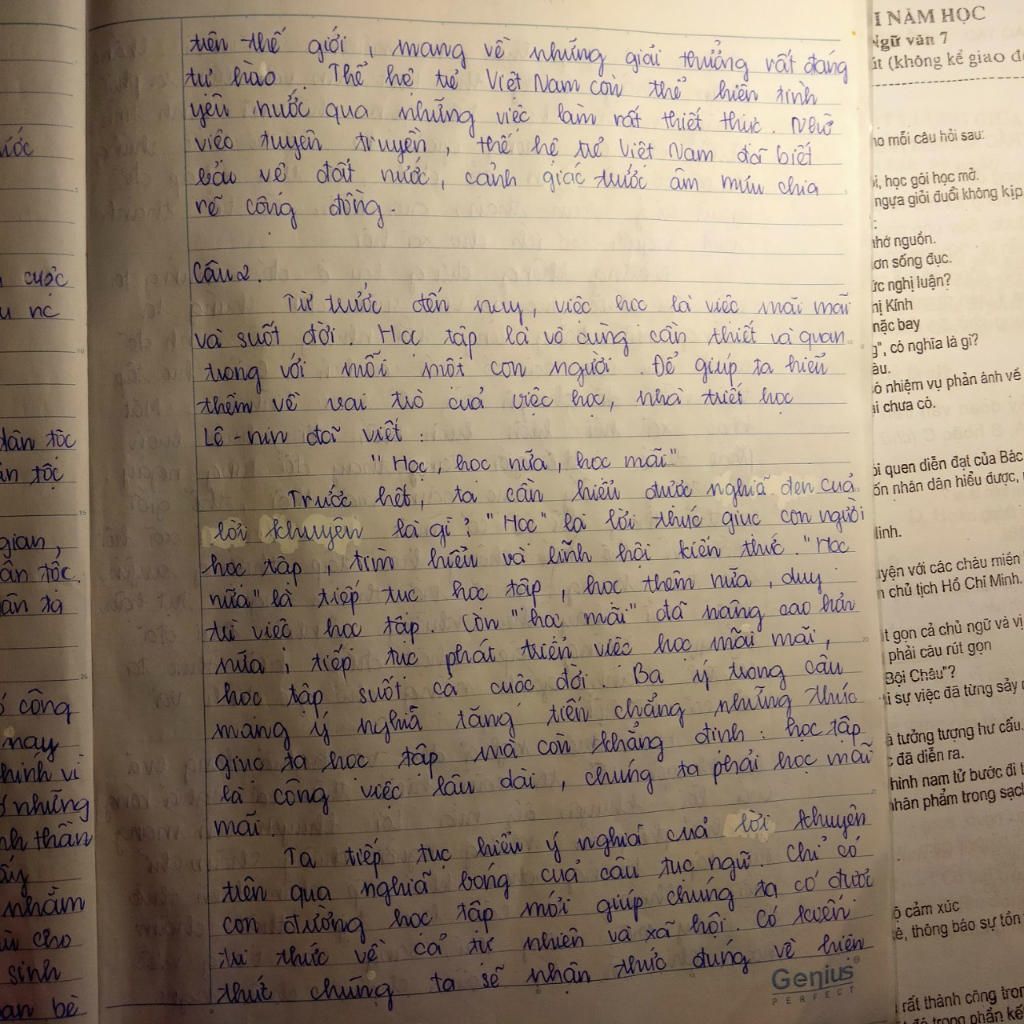 trên thế giới, mang về những giải thưởng rất đáng
tự hào. Thế hệ trẻ Việt Nam còn thể hiện tình
yêu nước qua những việc làm rất thiết thực. Nhờ
việc tuyên truyền, thế hệ trẻ Việt Nam đã biết
bảo vệ đất nước, cảnh giác trước âm mưu chia
rẽ cộng đồng.
Câu 2.
Từ trước đến nay, việc học là việc mãi mãi
và suốt đời. Học tập là vô cùng cần thiết và quan
trọng với mỗi một con người. Để giúp ta hiểu
thêm về vai trò của việc học, nhà triết học
Lê-nin đã viết:
"Học, học nữa, học mãi"
Trước hết, ta cần hiểu được nghĩa đen của
lời khuyên là gì? "Học" là lời thúc giục con người
học tập, tìm hiểu và lĩnh hội kiến thức. "Học
nữa" là tiếp tục học tập, học thêm nữa, duy
trì việc học tập. Còn "học mãi" đã nâng cao hơn
nữa; tiếp tục phát triển việc học mãi mãi,
học tập suốt cả cuộc đời. Ba ý trong câu
mang ý nghĩa tăng tiến chẳng những thúc
giục ta học tập mà còn khẳng định: học tập
là công việc lâu dài, chúng ta phải học mãi
mãi.
Ta tiếp tục hiểu ý nghĩa của lời khuyên
trên qua nghĩa bóng của câu tục ngữ. Chỉ có
con đường học tập mới giúp chúng ta có được
tri thức về cả tự nhiên và xã hội. Có kiến
thức chúng ta sẽ nhận thức đúng về hiện
Genius
PERFECT
cuộc
dân tộc
gian,
công
nay
những
nhằm
cho
sinh
bạn bè
I NĂM HỌC
Ngữ văn 7
(không kể giao đề
mỗi câu hỏi sau:
học gói học mở.
ngựa giỏi đuổi không kịp
nhớ nguồn.
sống đục.
nghị luận?
Kính
mặc bay
có nghĩa là gì?
nhiệm vụ phản ánh về
chưa có.
quen diễn đạt của Bác
nhân dân hiểu được,
với các cháu miền
chủ tịch Hồ Chí Minh.
gọn cả chủ ngữ và vị
phải câu rút gọn
Bội Châu"?
sự việc đã từng sảy
tưởng tượng hư cấu.
đã diễn ra.
hình nam tử bước đi
nhân phẩm trong sạch
cảm xúc
thông báo sự tồn
rất thành công
đó trong phần kết